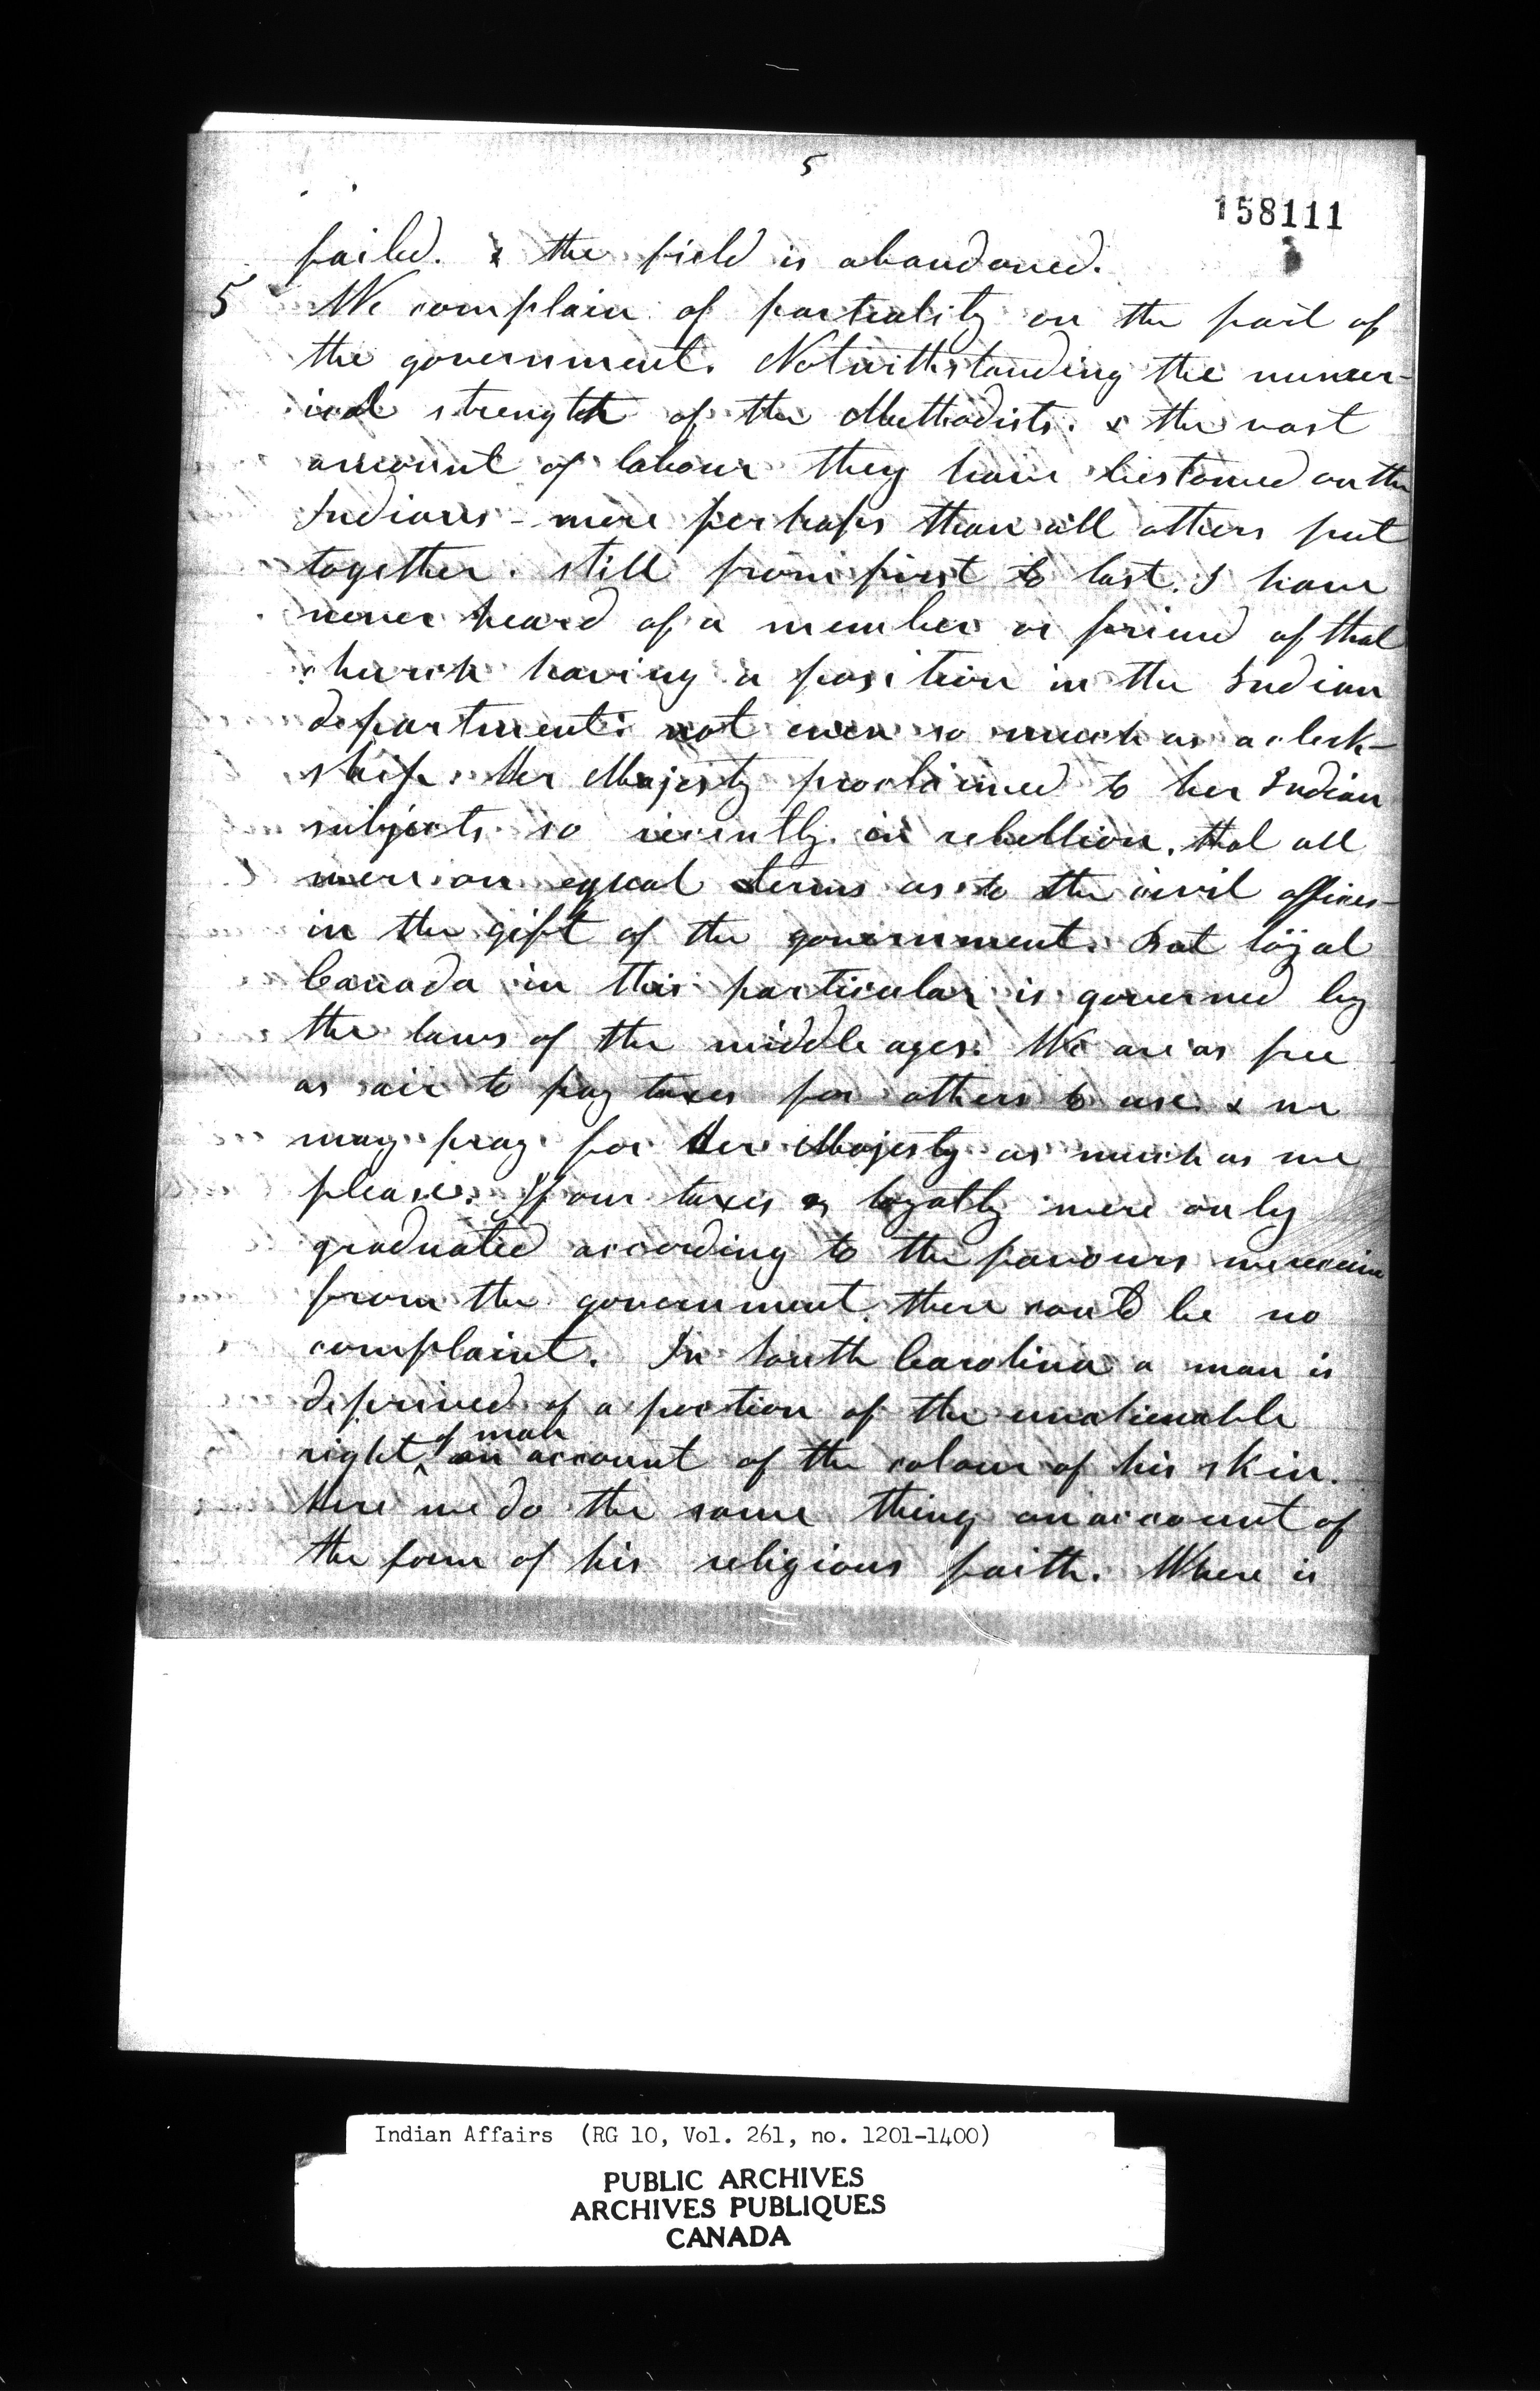 5
158111
failed. & the field is abandoned.
5 We complain of partiality on the part of
the government. Notwithstanding the numer-
ical strength of the Methodists. & the vast
amount of labour they have bestowed on the
Indians - more perhaps than all others put
together. still from first to last. I have
never heard of a member or friend of that
church having a position in the Indian
department: not even so much as a clerk-
ship. Her Majesty proclaimed to her Indian
subjects so recently in rebellion, that all
were on equal terms as to the civil offices
in the gift of the government. But loyal
Canada in this particular is governed by
the laws of the middle ages. We are as free
as air to pay taxes for others to use & we
may pray for Her Majesty as much as we
please. If our taxes & loyalty were only
graduated according to the favours we receive
from the government, there could be no
complaint. In South Carolina a man is
deprived of a portion of the unalienable
right of man on account of the colour of his skin.
Here we do the same thing on account of
the form of his religious faith. Where is
Indian Affairs (RG 10, Vol. 261, no. 1201-1400)
PUBLIC ARCHIVES
ARCHIVES PUBLIQUES
CANADA